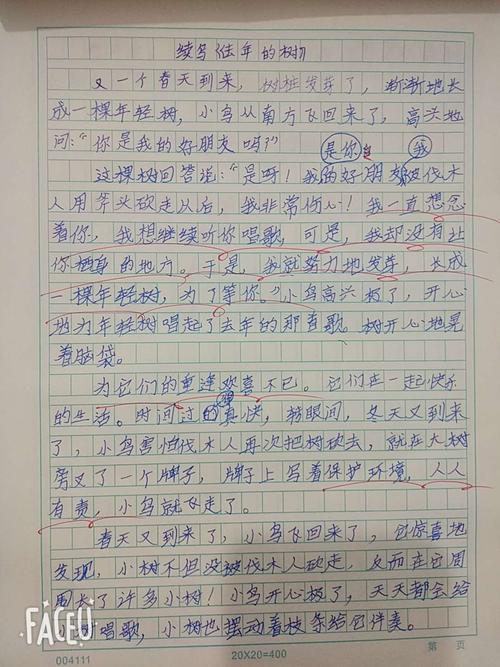 续写《去年的树》
又一个春天到来，树桩发芽了，渐渐地长
成一棵年轻树，小鸟从南方飞回来了，高兴地
问：“你是我的好朋友吗？”
是你 我
这棵树回答说：“是呀！我的好朋友被伐木
人用斧头砍走以后，我非常伤心！我一直想念
着你，我想继续听你唱歌，可是，我却没有让
你栖身的地方。于是，我就努力地发芽，长成
一棵年轻树，为了等你。”小鸟高兴极了，开心
地为年轻树唱起了去年的那首歌。树开心地晃
着脑袋。
为它们的重逢欢喜不已。它们在一起快乐
的生活。时间过的真快，转眼间，冬天又到来
了，小鸟害怕伐木人再次把树砍去，就在大树
旁又了一个牌子，牌子上写着保护环境，人人
有责，小鸟就飞走了。
春天又到来了，小鸟飞回来了，它惊喜地
发现，小树不但没被伐木人砍走，反而在它周
围长了许多小树！小鸟开心极了，天天都会给
树唱歌，小树也摆动着枝条给它伴奏。
FACEU
004111
20X20=400
第 页